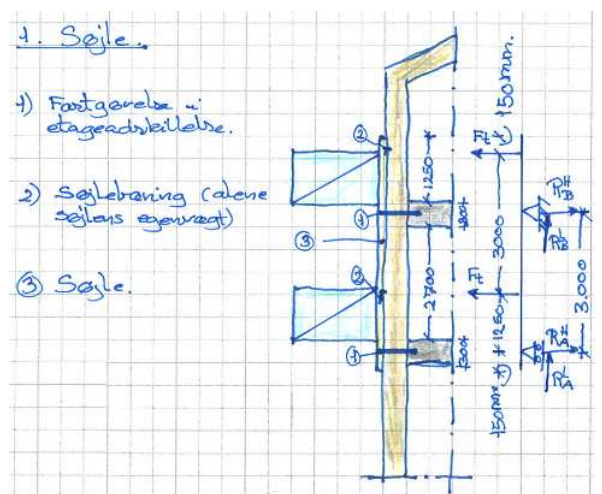 1. Søjle.
1) Fastgørelse i
etageadskillelse.
2) Søjlebæring (alene
søjlens egenvægt)
③ Søjle.
②
①
③
②
①
1250
300
2700
300
F
F
*) 150mm.
3000
1250
150mm *)
3.000